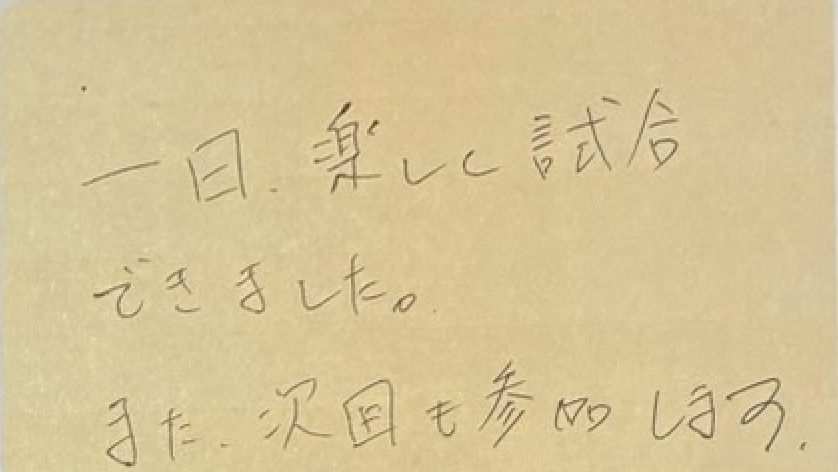 一日、楽しく試合
できました。
また、次回も参加します、